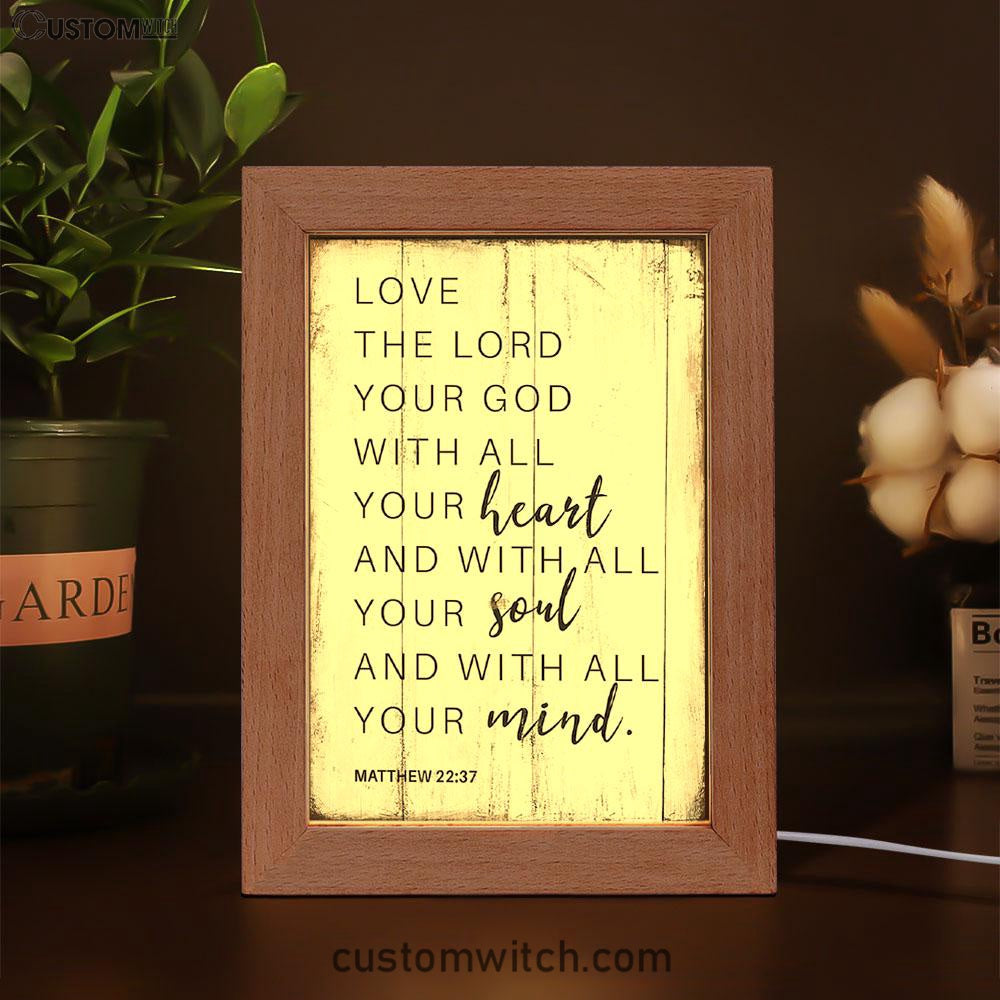 CUSTOMWITCH
LOVE
THE LORD
YOUR GOD
WITH ALL
YOUR heart
AND WITH ALL
YOUR soul
AND WITH ALL
YOUR mind.
MATTHEW 22:37
GARDE
customwitch.com